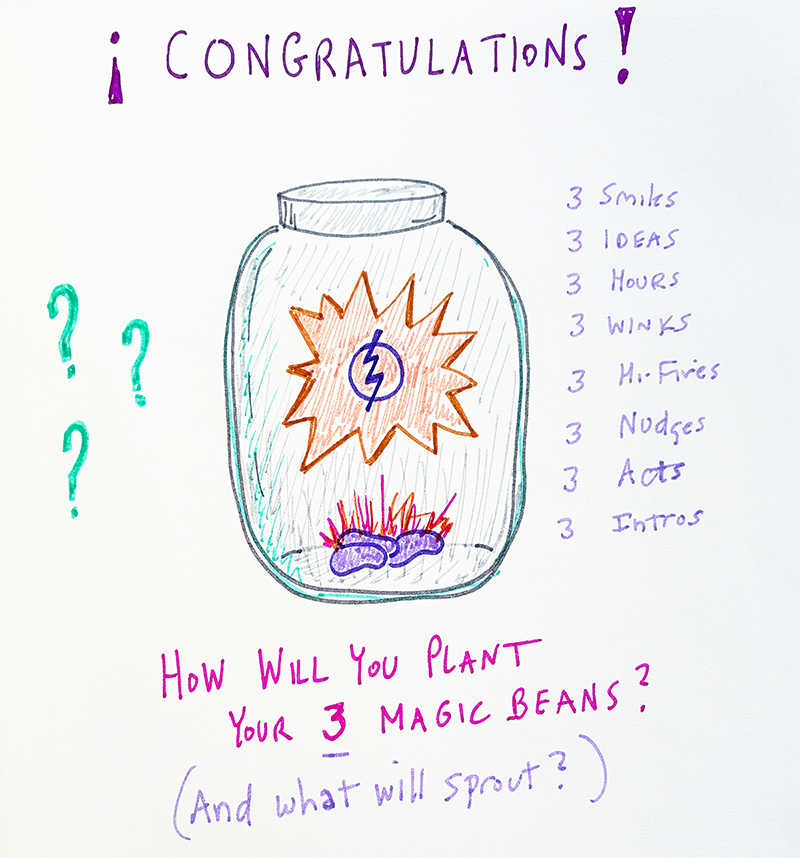 ¡ CONGRATULATIONS !
? ? ?
3 Smiles
3 IDEAS
3 HOURS
3 WINKS
3 Hi-Fives
3 Nudges
3 Acts
3 Intros
HOW WILL YOU PLANT
YOUR 3 MAGIC BEANS?
(And what will sprout?)